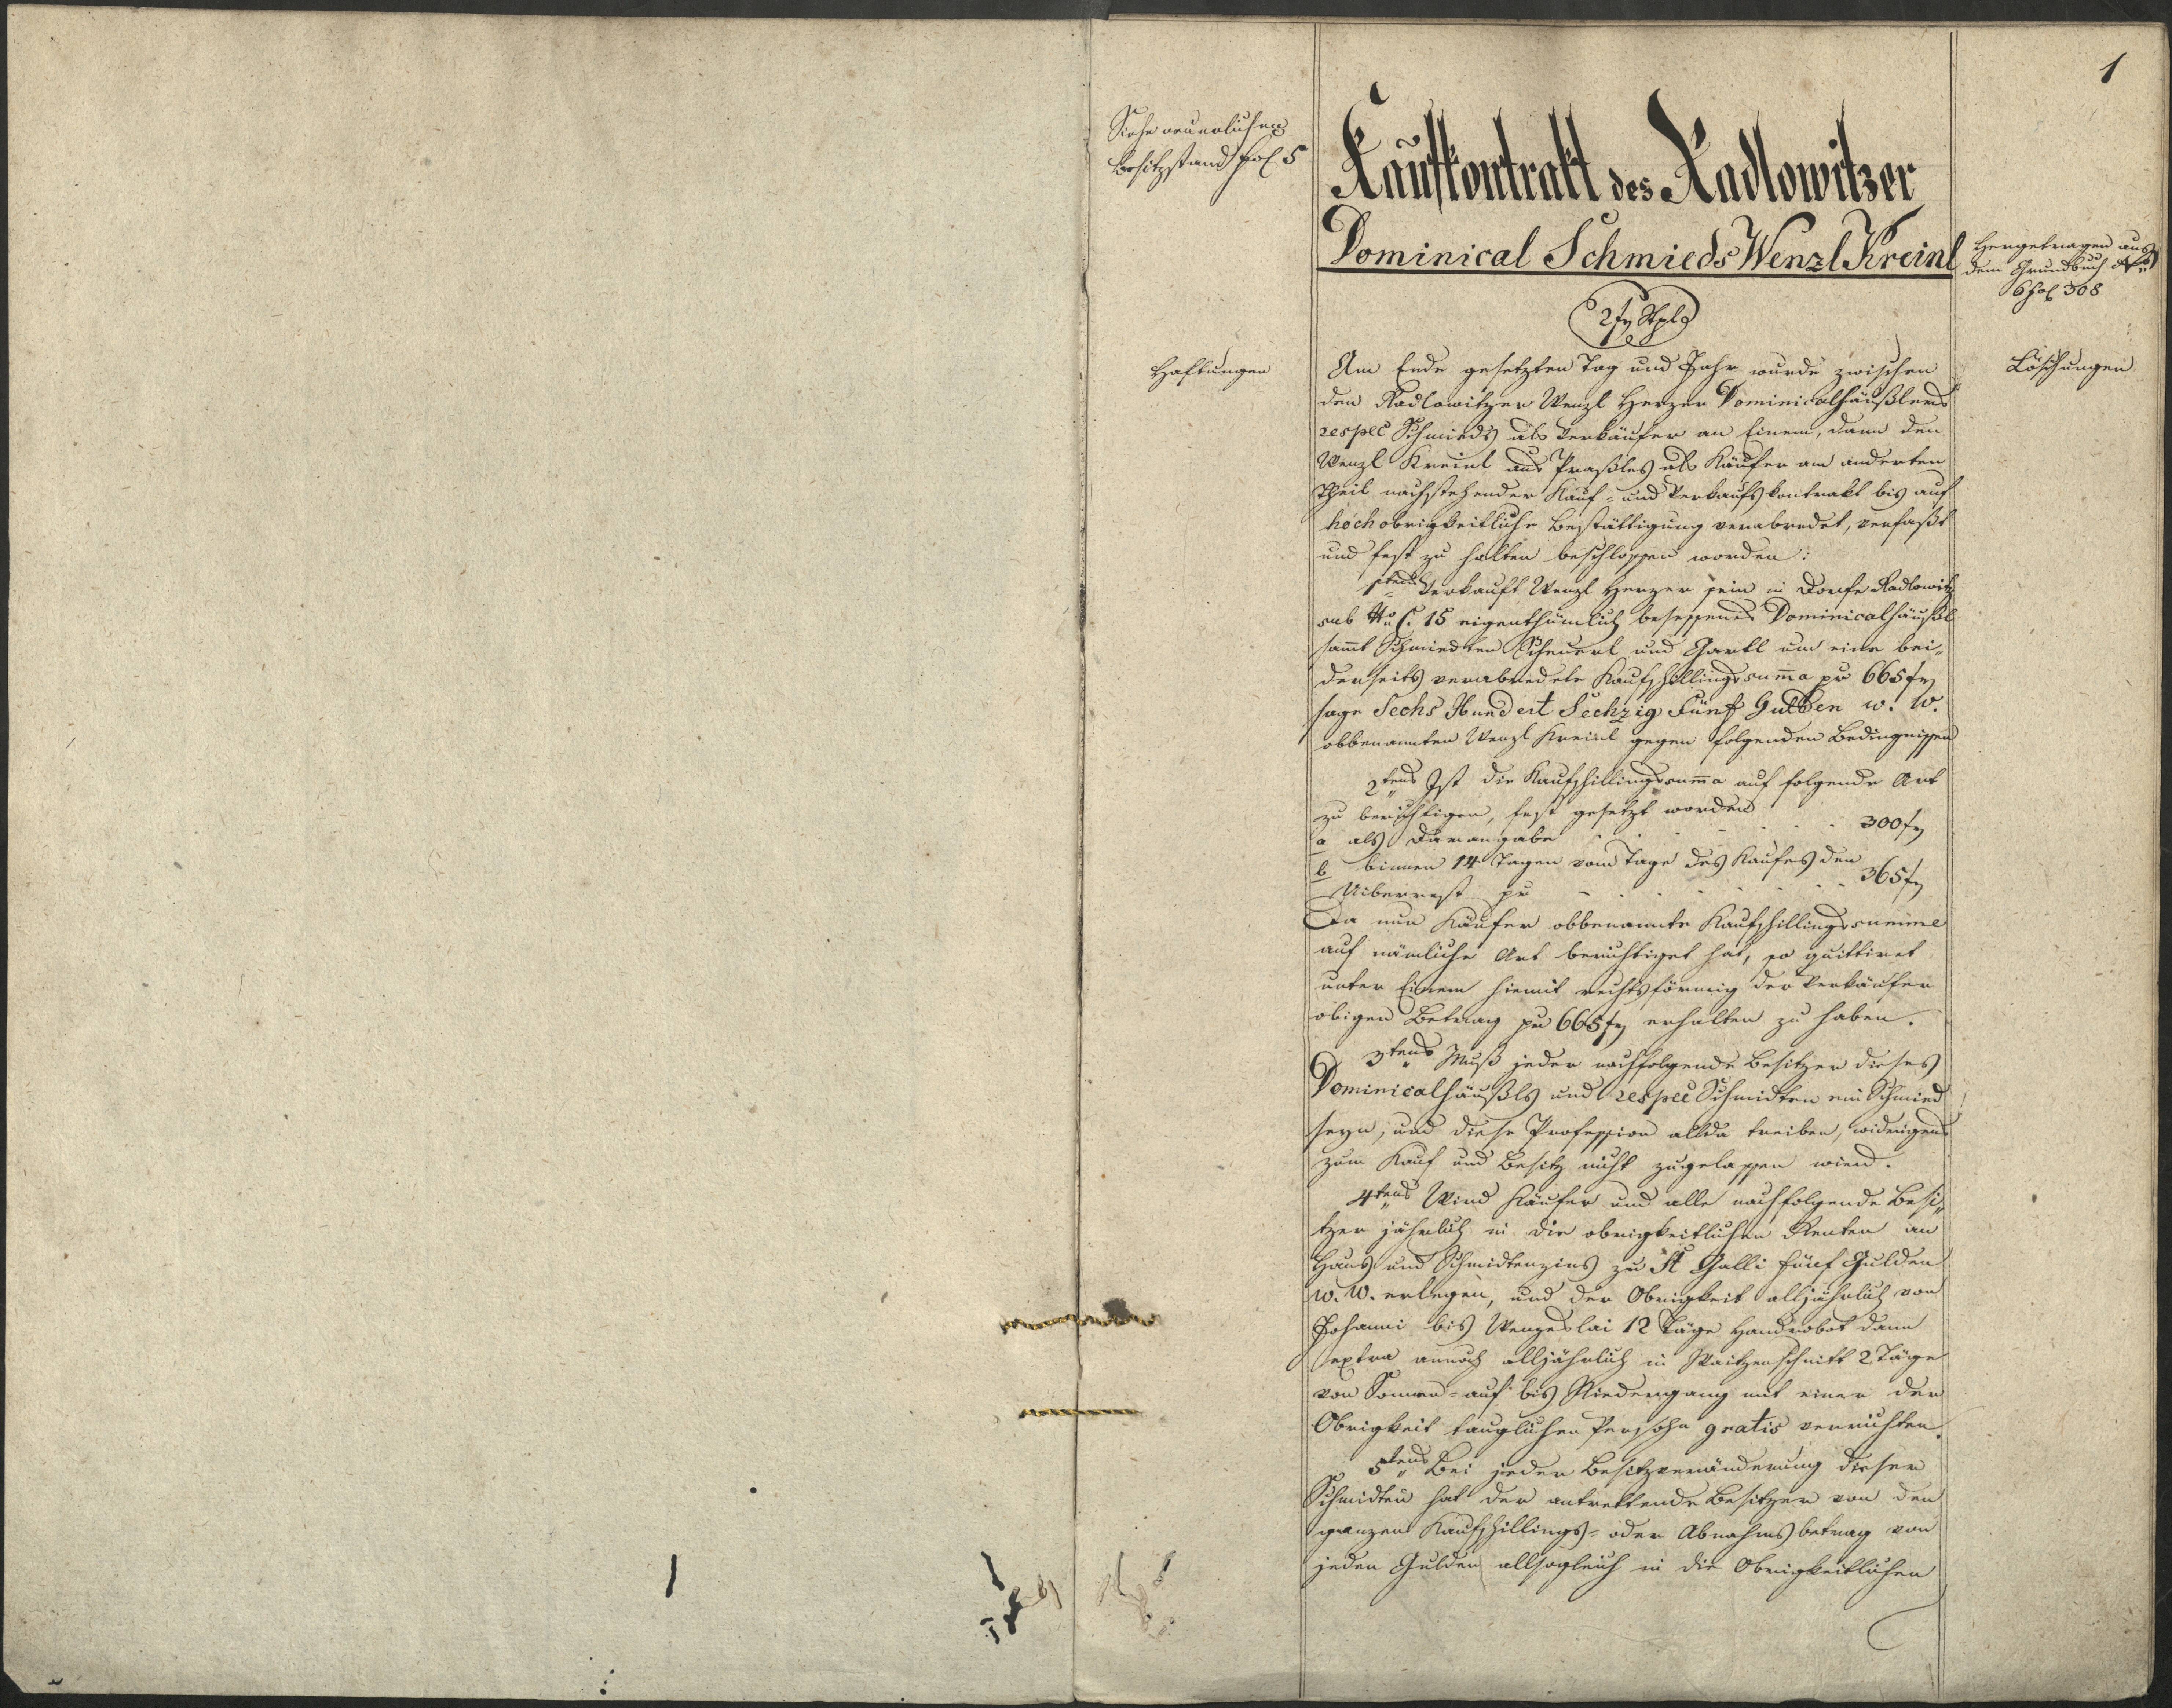 1
Siehe neuerlichen
Besitzstand fol. 5
Kaufkontrakt des Radlowitzer
Dominical Schmieds Wenzl Kreinl
Hergetragen aus
dem Grundbuch
6 fol 308
2 f Stpl
Haftungen
Löschungen
Am Ende gesetzten Tag und Jahr wurde zwischen
den Radlowitzer Wenzl Herzer Dominicalhäußlers
respec Schmieds als Verkäufer an Einem, dann den
Wenzl Kreinl aus Praßles als Käufer am anderten
Theil nachstehender Kauf- und Verkaufskontrakt bis auf
hochobrigkeitliche Bestättigung verabredet, verfaßt
und fest zu halten beschlossen worden:
1tens Verkauft Wenzl Herzer sein in Dorfe Radlowitz
sub No C. 15 eigenthümlich besessenes Dominicalhäußl
sammt Schmiedten Scheuerl und Gartl um eine bei-
derseits verabredete Kaufschillingssumma pr 665 f
sage Sechs Hundert Sechzig Fünf Gulden w. W.
obbenannten Wenzl Kreinl gegen folgenden Bedingnissen
2tens Ist die Kaufschillingssumma auf folgende Art
zu berichtigen, fest gesetzt worden
a als Darangabe . . . . 300 f
b binnen 14 Tagen vom Tage des Kaufes den
Uiberrest pr . . . . . . 365 f
Da nun Käufer obbenannte Kaufschillingssumme
auf nämliche Art berichtiget hat, so quittiret
unter Einem hiemit rechtsförmig der Verkäufer
obigen Betrag pr 665 f erhalten zu haben.
3tens Muß jeder nachfolgende Besitzer dieses
Dominicalhäußls und respec Schmidten ein Schmied
seyn, und diese Profession allda treiben, widrigens
zum Kauf und Besitz nicht zugelassen wird.
4tens Wird Käufer und alle nachfolgende Besi-
tzer jährlich in die obrigkeitlichen Renten an
Haus und Schmidtenzins zu St Galli fünf Gulden
w. W. erlegen, und der Obrigkeit alljährlich von
Johanni bis Wenzeslai 12 Täge Handrobot dann
extra annoch alljährlich in Waitzenschnitt 2 Täge
von Sonnen-auf bis Niedergang mit einer der
Obrigkeit tauglichen Persohn gratis verrichten.
5tens Bei jeder Besitzveränderung dieser
Schmidten hat der antrettende Besitzer von den
ganzen Kaufschillings- oder Abnahmsbetrag von
jeden Gulden allsogleich in die Obrigkeitlichen